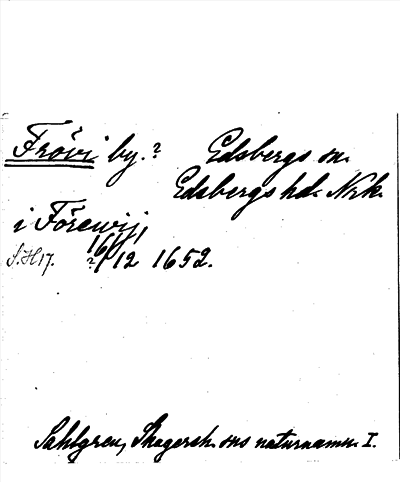 Frövi by.? Edsbergs sn.
Edsbergs hd. Nrk.
i Förewij,
S.H 17. ? 16/12 1652.
Sahlgren, Skagersh. sns naturnamn I.